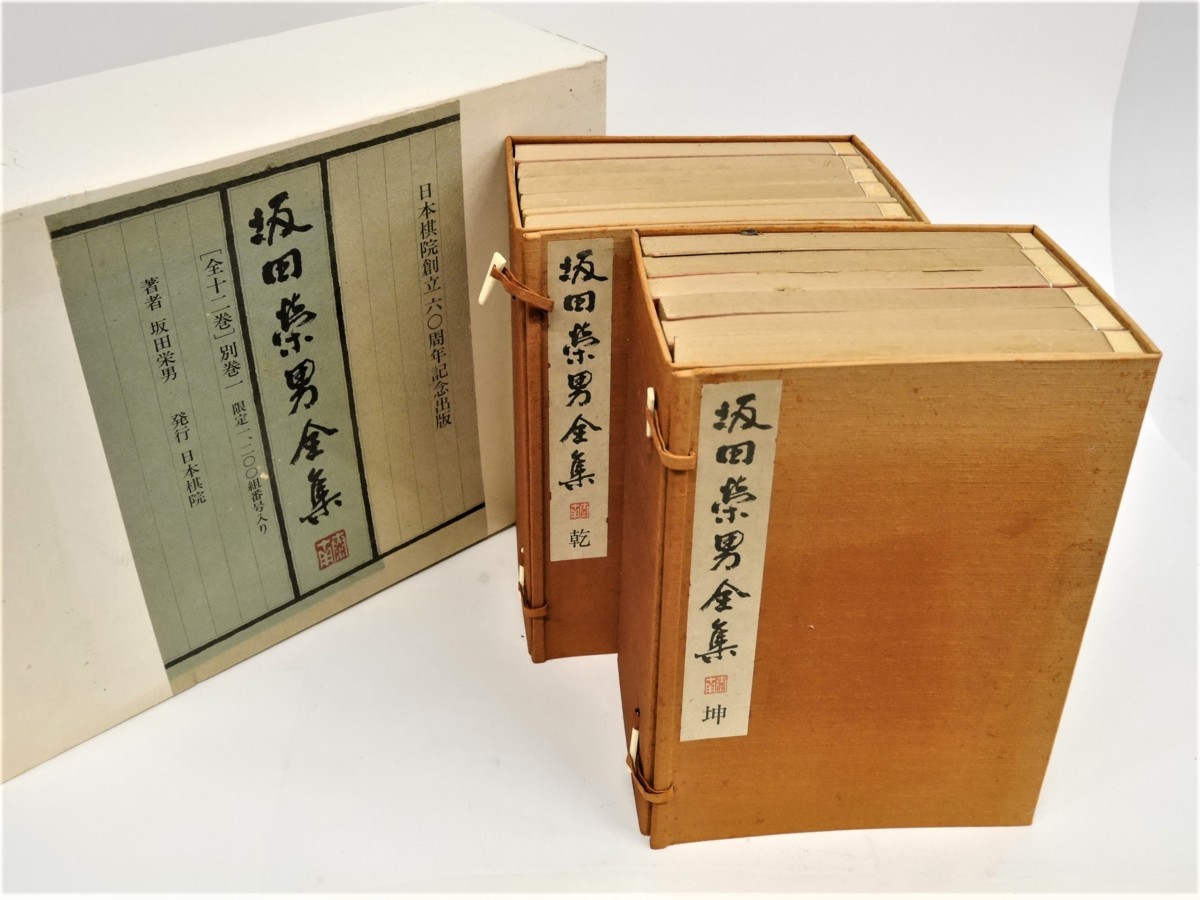 日本棋院創立六〇周年記念出版
坂田榮男全集
［全十二巻］別巻一 限定一、二〇〇組番号入り
著者 坂田栄男 発行 日本棋院
坂田榮男全集
乾
坂田榮男全集
坤